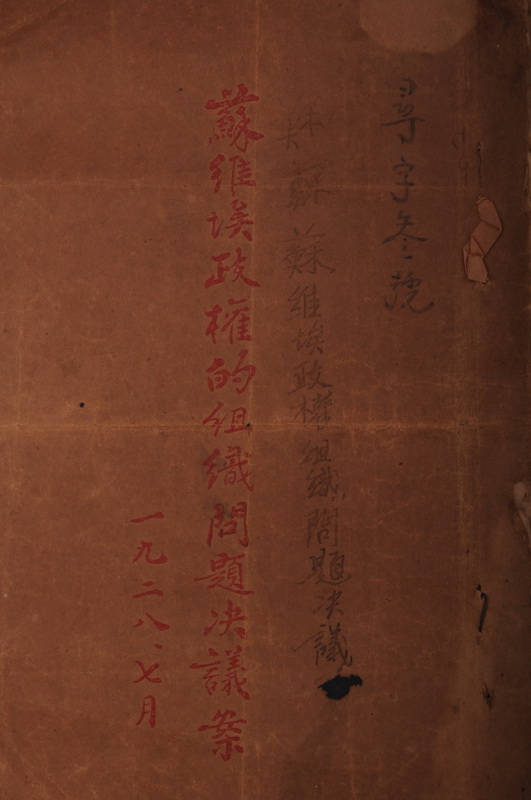 尋字冬號
蘇蘇維埃政權組織問題决議
蘇維埃政權的組織問題决議案
一九二八、七月